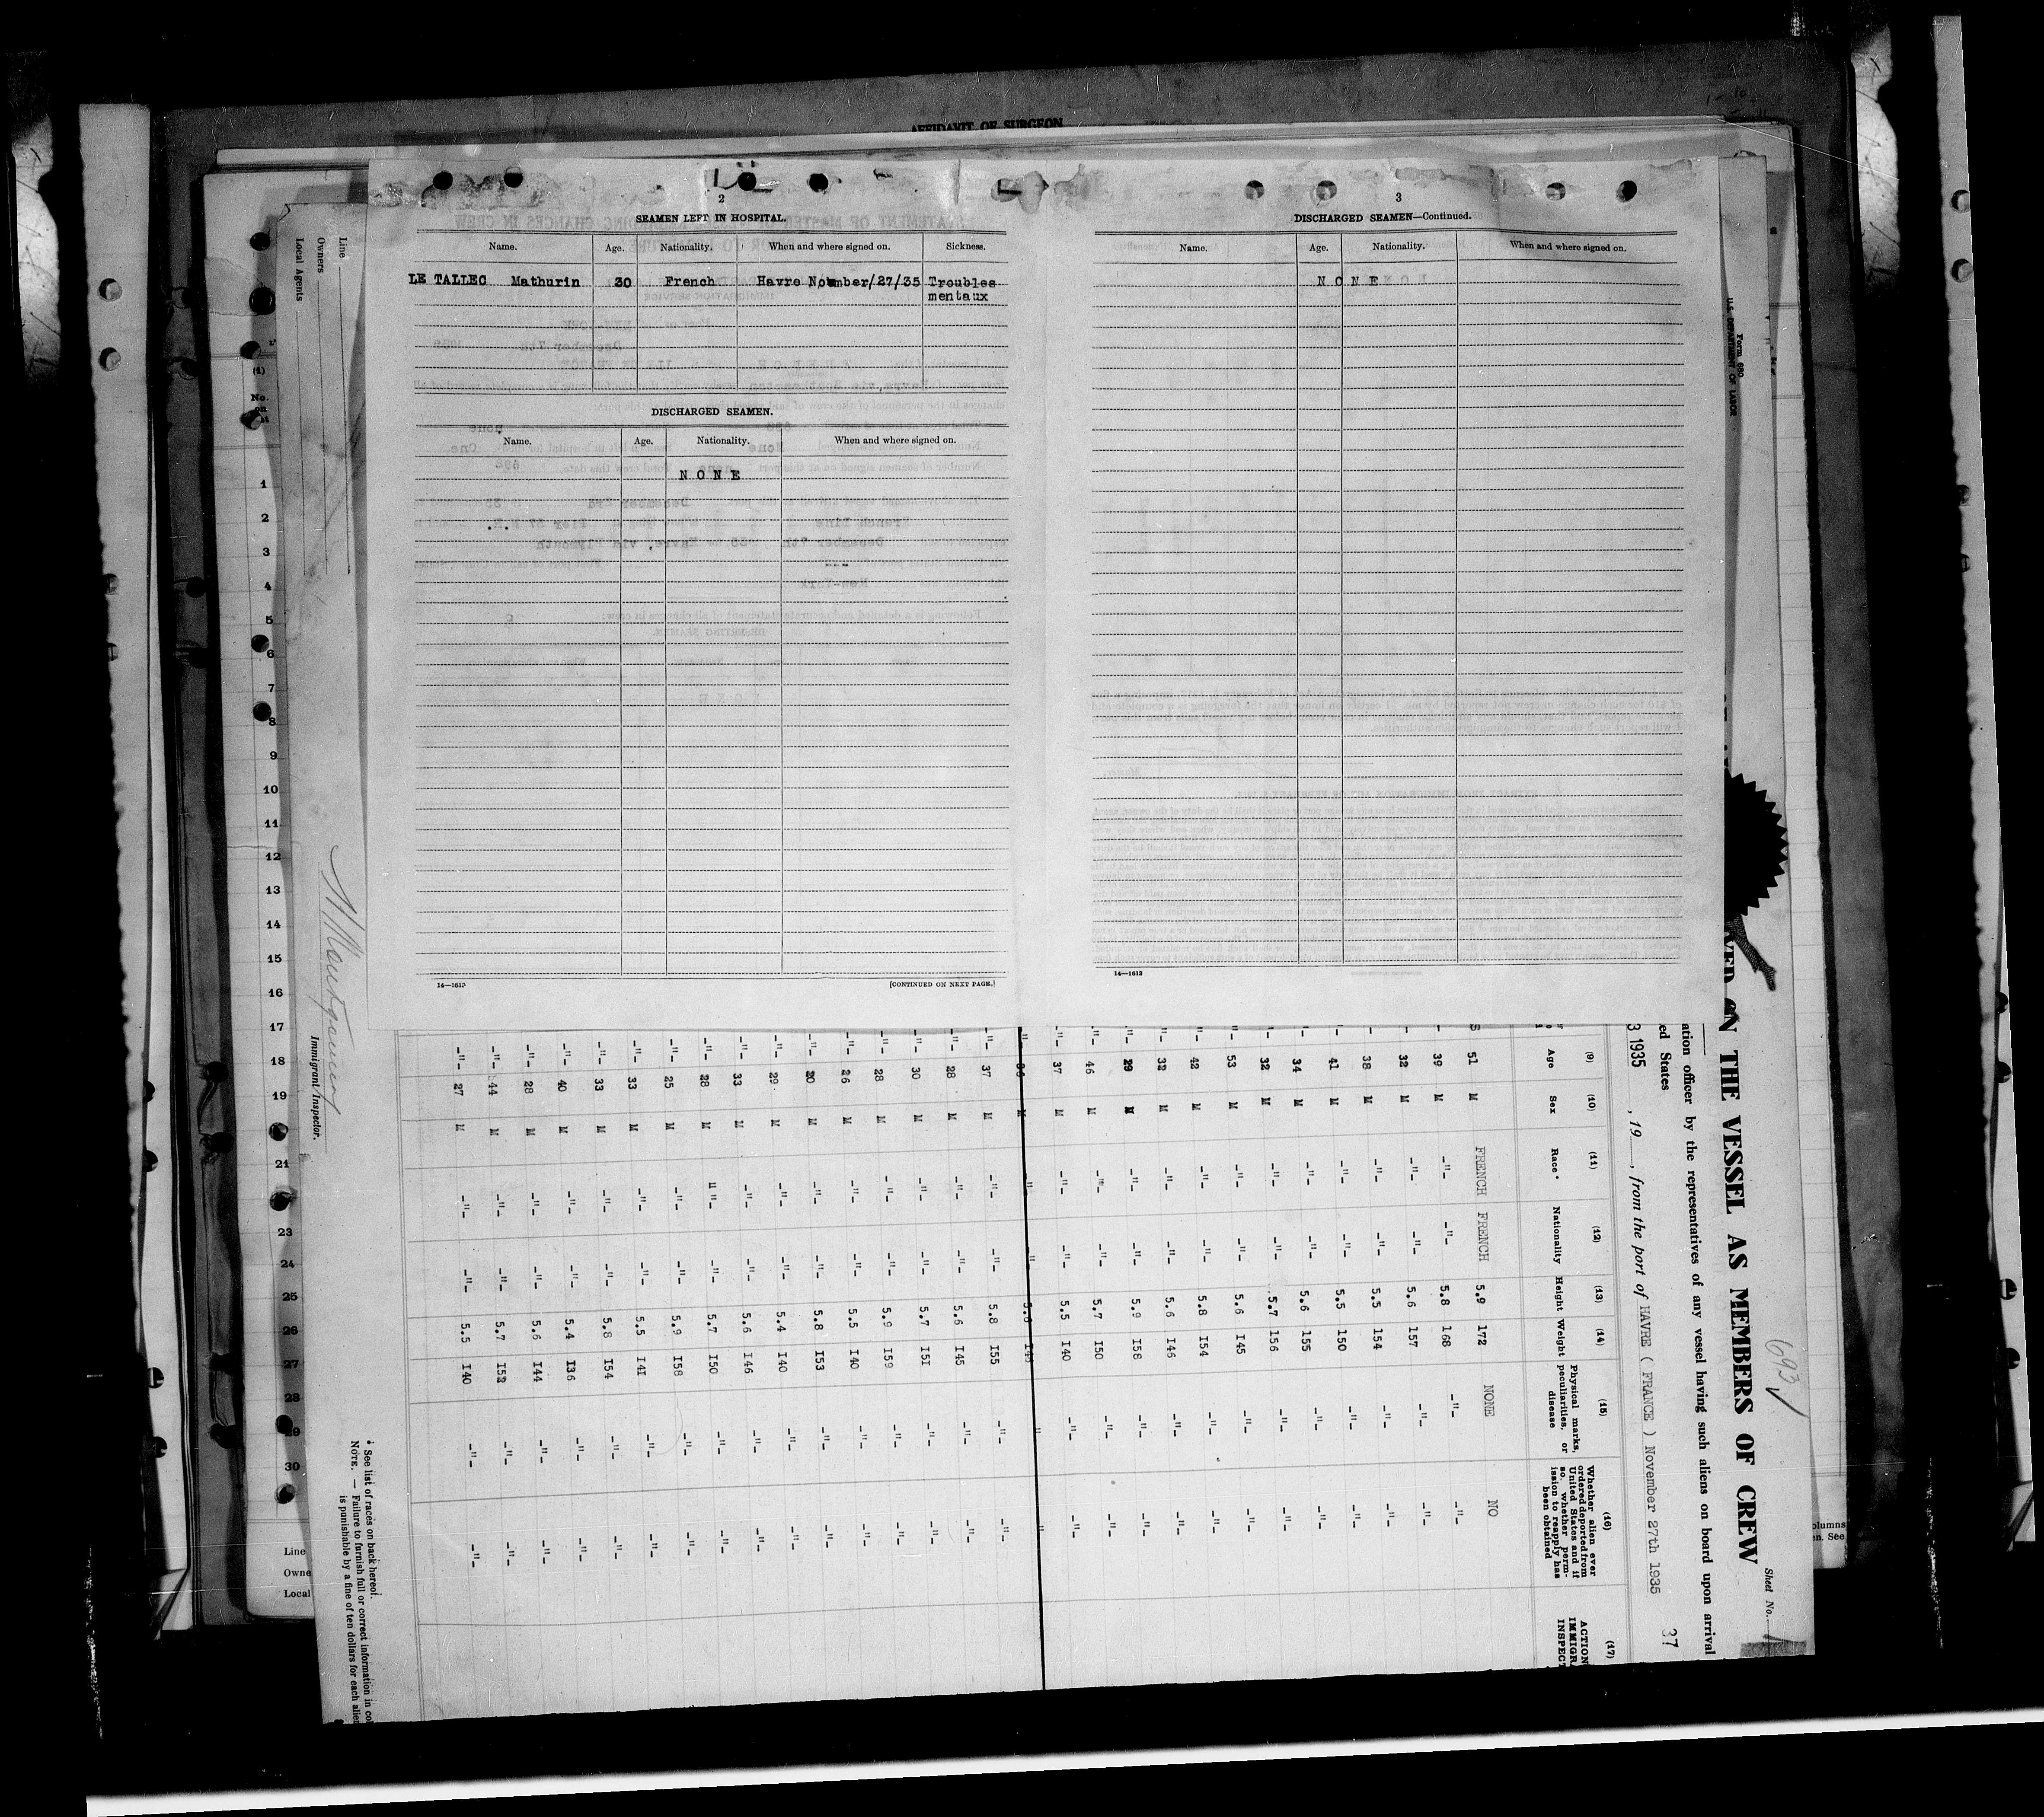 AFFIDAVIT OF SURGEON
2
SEAMEN LEFT IN HOSPITAL.
Name. Age. Nationality. When and where signed on. Sickness.
LE TALLEC Mathurin 30 French Havre November/27/35 Troubles
mentaux
DISCHARGED SEAMEN.
Name. Age. Nationality. When and where signed on.
NONE
14—1613 [CONTINUED ON NEXT PAGE.]
3
DISCHARGED SEAMEN—Continued.
Name. Age. Nationality. When and where signed on.
NONE
14—1613
Form 680
U.S. DEPARTMENT OF LABOR
Line
Owners
Local Agents
Immigrant Inspector.
(1)
No.
on
1
2
3
4
5
6
7
8
9
10
11
12
13
14
15
16
17
18
19
21
23
24
25
26
27
28
29
30
Line
Owne
Local
693
Sheet No.
37
N THE VESSEL AS MEMBERS OF CREW
ation officer by the representatives of any vessel having such aliens on board upon arrival
ed States
3 1935, 19, from the port of HAVRE ( FRANCE ) November 27th 1935
(9) (10) (11) (12) (13) (14) (15) (16) (17)
Age Sex Race* Nationality Height Weight Physical marks, peculiarities, or disease Whether alien ever ordered deported from United States and if so, whether permission to reapply has been obtained ACTION IMMIGR INSPECT
51 M FRENCH FRENCH 5.9 172 NONE NO
-"- 39 M -"- -"- 5.8 168 -"- -"-
-"- 32 M -"- -"- 5.6 157 -"- -"-
-"- 38 M -"- -"- 5.5 154 -"- -"-
-"- 41 M -"- -"- 5.5 150 -"- -"-
-"- 34 M -"- -"- 5.6 155 -"- -"-
-"- 32 M -"- -"- 5.7 156 -"- -"-
-"- 53 M -"- -"- 5.6 I45 -"- -"-
-"- 42 M -"- -"- 5.8 I54 -"- -"-
-"- 32 M -"- -"- 5.6 I46 -"- -"-
-"- 29 M -"- -"- 5.9 I58 -"- -"-
-"- 46 M -"- -"- 5.7 I50 -"- -"-
-"- 37 M -"- -"- 5.5 I40 -"- -"-
-"- 37 M -"- -"- 5.8 I55 -"- -"-
-"- 28 M -"- -"- 5.6 I45 -"- -"-
-"- 30 M -"- -"- 5.7 I5I -"- -"-
-"- 28 M -"- -"- 5.9 I59 -"- -"-
-"- 26 M -"- -"- 5.5 I40 -"- -"-
-"- 20 M -"- -"- 5.8 I53 -"- -"-
-"- 29 M -"- -"- 5.4 I40 -"- -"-
-"- 33 M -"- -"- 5.6 I46 -"- -"-
-"- 28 M -"- -"- 5.7 I50 -"- -"-
-"- 25 M -"- -"- 5.9 I58 -"- -"-
-"- 33 M -"- -"- 5.5 I4I -"- -"-
-"- 33 M -"- -"- 5.8 I54 -"- -"-
-"- 40 M -"- -"- 5.4 I36 -"- -"-
-"- 28 M -"- -"- 5.6 I44 -"- -"-
-"- 44 M -"- -"- 5.7 I52 -"- -"-
-"- 27 M -"- -"- 5.5 I40 -"- -"-
* See list of races on back hereof.
NOTE. — Failure to furnish full or correct information in co
is punishable by a fine of ten dollars for each alien
olumns
en. See